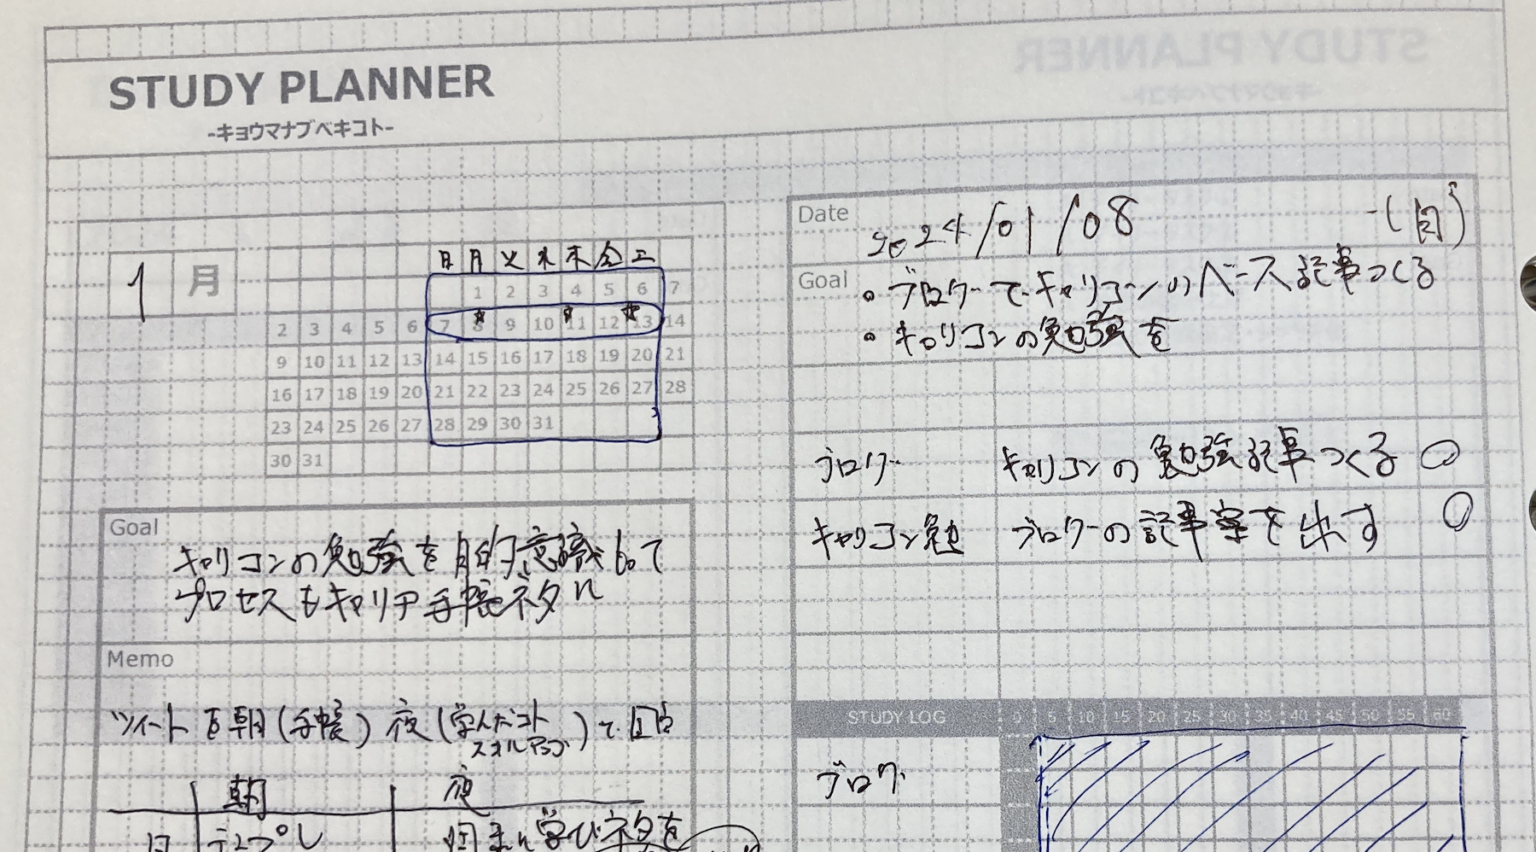 STUDY PLANNER
-キョウマナブベキコト-
1 月
日 月 火 水 木 金 土
1 2 3 4 5 6 7
2 3 4 5 6 7 8 9 10 11 12 13 14
9 10 11 12 13 14 15 16 17 18 19 20 21
16 17 18 19 20 21 22 23 24 25 26 27 28
23 24 25 26 27 28 29 30 31
30 31
Goal
キャリコンの勉強を目的意識もって
プロセスもキャリア手帳ネタに
Memo
ツイートを朝(手帳)夜(学んだコト
スキルアップ)で
朝 夜
月 テンプレ 学びネタを
Date 2024/01/08 (月)
Goal
・ブログでキャリコンのベース記事つくる
・キャリコンの勉強を
ブログ キャリコンの勉強記事つくる ○
キャリコン勉 ブログの記事案を出す ○
STUDY LOG 0 5 10 15 20 25 30 35 40 45 50 55 60
ブログ